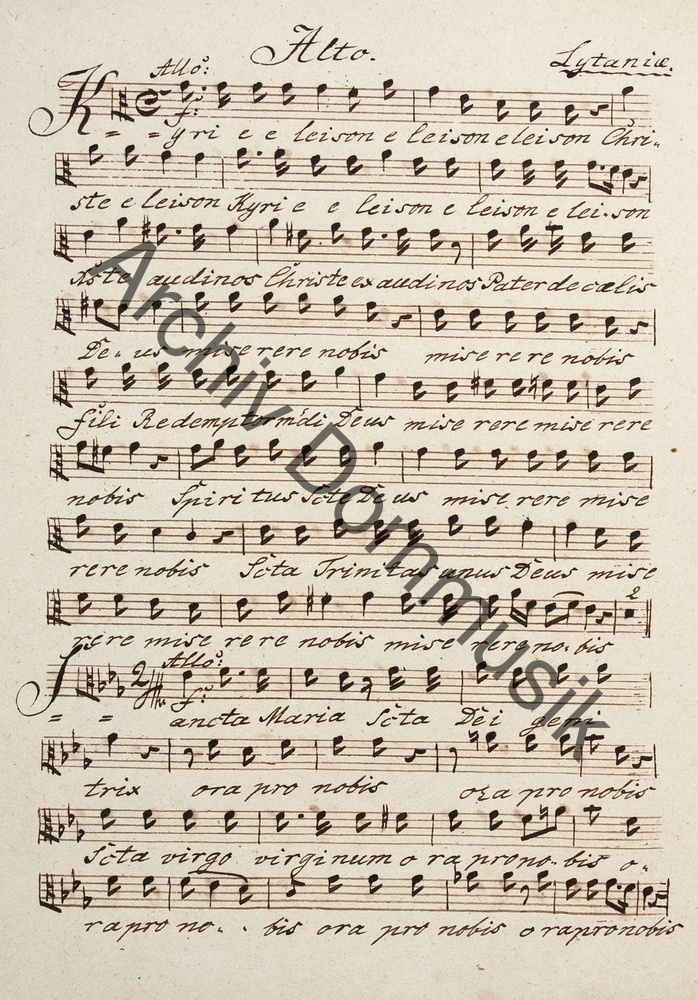 Alto.
Lytaniæ.
Allo:
f:
K = = yri e e leison e leison e leison Chri-
ste e leison Kyri e e leison e leison e lei-son
Xste audinos Christe ex audinos Pater de cælis
De-us mise rere nobis mise re re nobis
fili Redemptor mdi Deus mise rere mise rere
nobis Spiri tus Scte De us mise rere mise
rere nobis Scta Trinitas unus Deus mise
rere mise re re nobis mise rere no-bis
2
Allo:
f:
S = = ancta Maria Scta Dei geni
trix ora pro nobis ora pro nobis
Scta virgo virginum o ra pro no-bis o-
ra pro no-- bis ora pro nobis o ra pro nobis
Archiv Dommusik